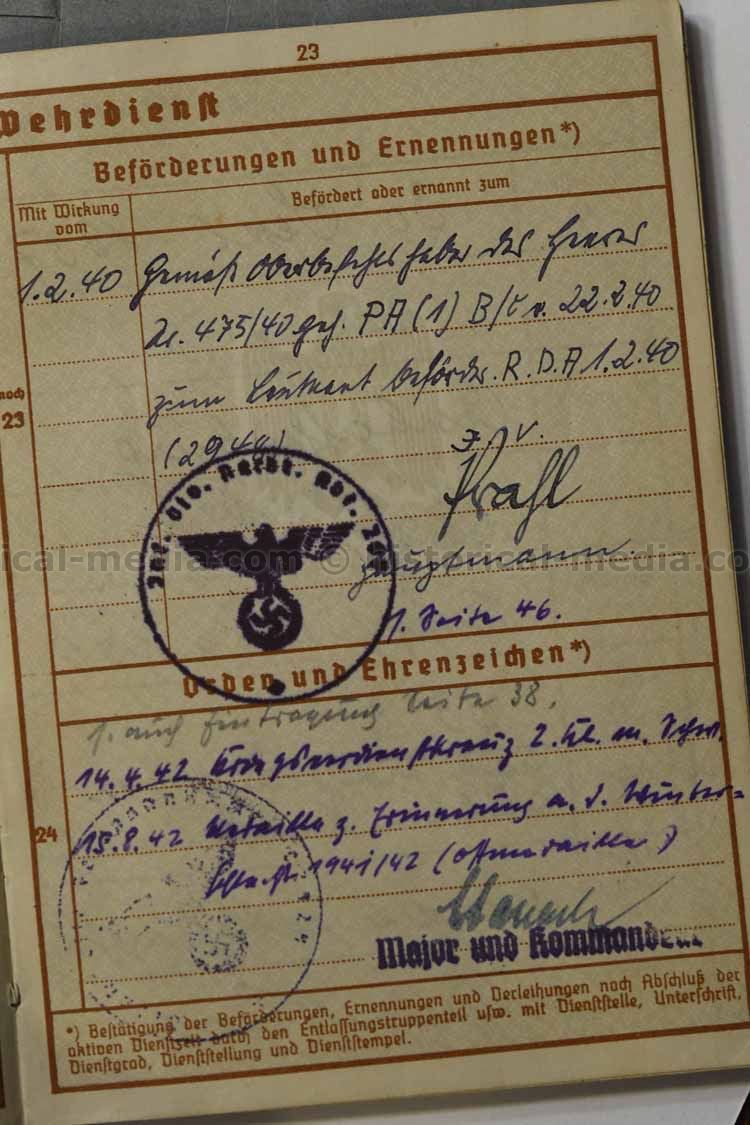 23
Wehrdienst
Beförderungen und Ernennungen*)
Mit Wirkung vom
Befördert oder ernannt zum
1.2.40 Gemäß Oberbefehlshaber des Heeres
Nr. 475/40 geh. PA (1) B/c v. 22.2.40
zum Leutnant befördert. R.D.A 1.2.40
noch
23
J. V.
Krahl
Hauptmann.
s. Seite 46.
Orden und Ehrenzeichen*)
s. auch Eintragung Seite 38.
14.4.42 Kriegsverdienstkreuz 2. Kl. m. Schw.
24
15.8.42 Medaille z. Erinnerung a. d. Winter-
schlacht 1941/42 (Ostmedaille)
Major und Kommandeur
*) Bestätigung der Beförderungen, Ernennungen und Verleihungen nach Abschluß der
aktiven Dienstzeit durch den Entlassungstruppenteil usw. mit Dienststelle, Unterschrift,
Dienstgrad, Dienststellung und Dienststempel.
historical-media.com © historical-media.com